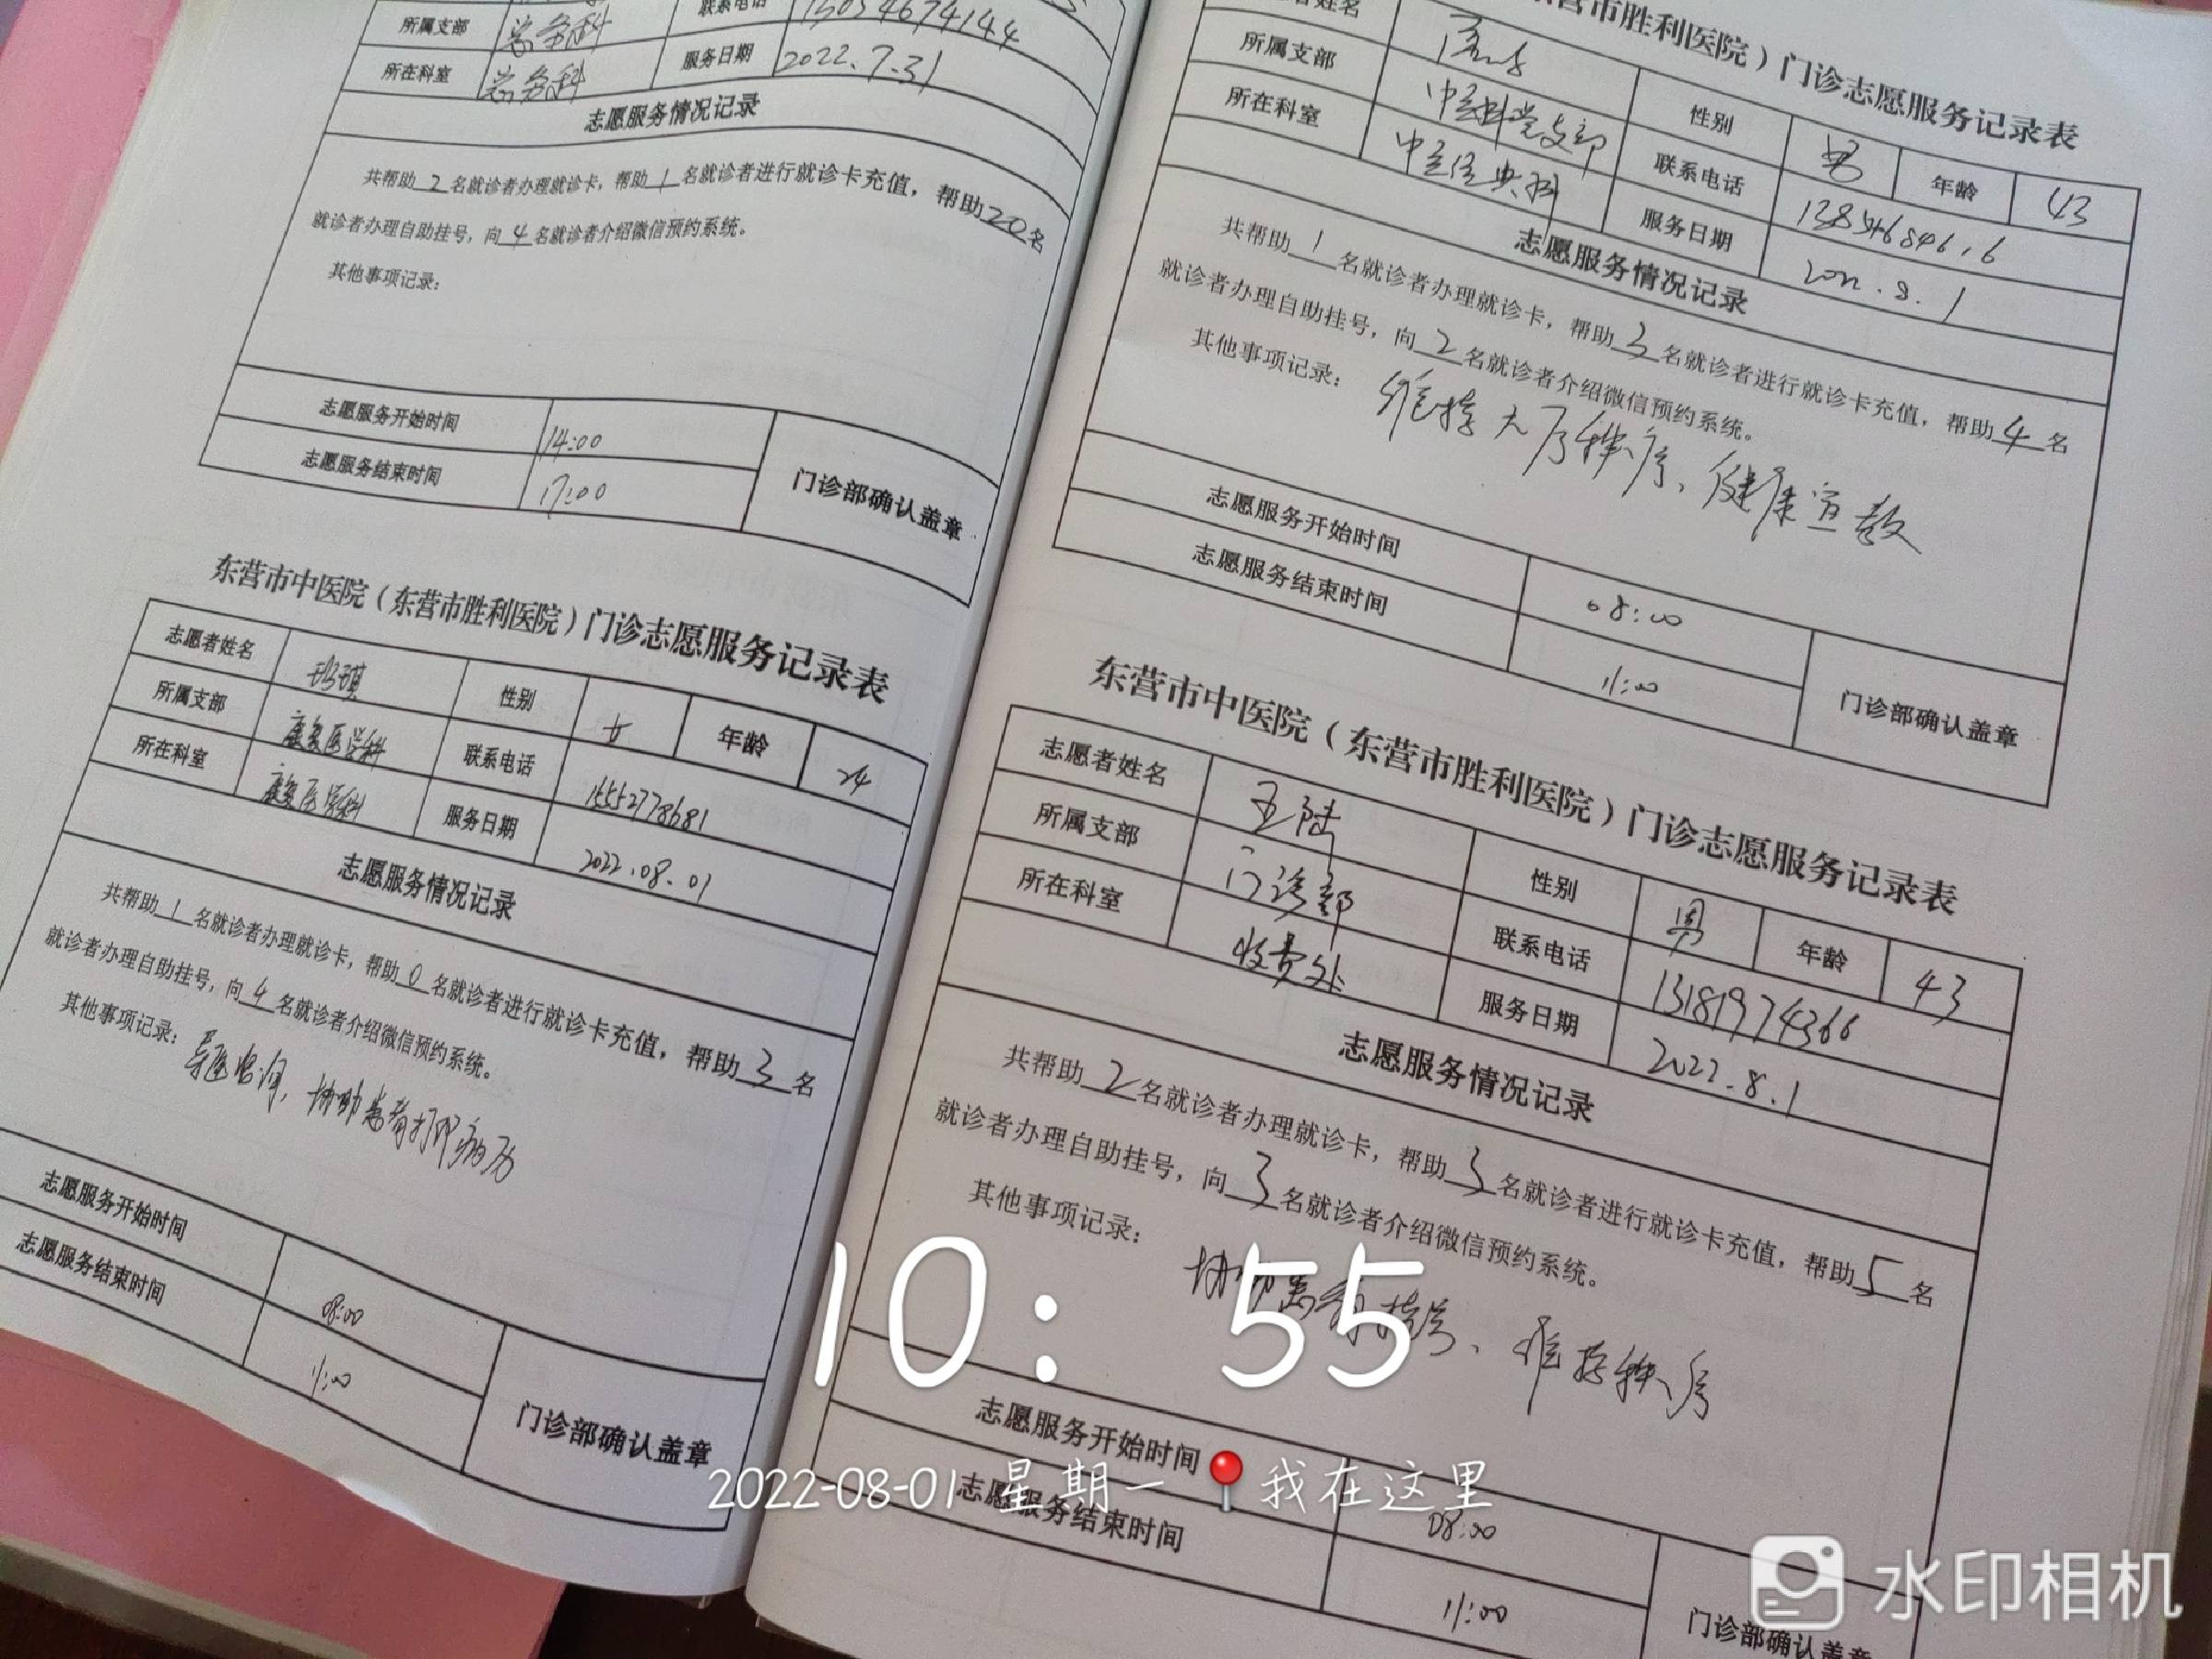 所属支部 总务科 联系电话 15054674144
所在科室 总务科 服务日期 2022.7.31
志愿服务情况记录
共帮助2名就诊者办理就诊卡，帮助1名就诊者进行就诊卡充值，帮助20名
就诊者办理自助挂号，向4名就诊者介绍微信预约系统。
其他事项记录：
志愿服务开始时间 14:00
志愿服务结束时间 17:00
门诊部确认盖章
东营市中医院（东营市胜利医院）门诊志愿服务记录表
志愿者姓名 性别 女 年龄 24
所属支部 康复医学科 联系电话 15552778681
所在科室 康复医学科 服务日期 2022.08.01
志愿服务情况记录
共帮助1名就诊者办理就诊卡，帮助0名就诊者进行就诊卡充值，帮助3名
就诊者办理自助挂号，向4名就诊者介绍微信预约系统。
其他事项记录：
导医咨询，协助患者打印病历
志愿服务开始时间 08:00
志愿服务结束时间 11:00
门诊部确认盖章
东营市胜利医院）门诊志愿服务记录表
者姓名 性别 男 年龄 43
所属支部 中医科党支部 联系电话
所在科室 中医经典科 服务日期 2022.8.1
志愿服务情况记录
共帮助1名就诊者办理就诊卡，帮助3名就诊者进行就诊卡充值，帮助4名
就诊者办理自助挂号，向2名就诊者介绍微信预约系统。
其他事项记录：维持大厅秩序、健康宣教
志愿服务开始时间 08:00
志愿服务结束时间 11:00
门诊部确认盖章
东营市中医院（东营市胜利医院）门诊志愿服务记录表
志愿者姓名 王陆 性别 男 年龄 43
所属支部 门诊部 联系电话 13181974366
所在科室 收费处 服务日期 2022.8.1
志愿服务情况记录
共帮助2名就诊者办理就诊卡，帮助3名就诊者进行就诊卡充值，帮助5名
就诊者办理自助挂号，向3名就诊者介绍微信预约系统。
其他事项记录：协助患者挂号、维持秩序
志愿服务开始时间 08:00
志愿服务结束时间 11:00
门诊部确认盖章
10:55
2022-08-01 星期一 我在这里
水印相机